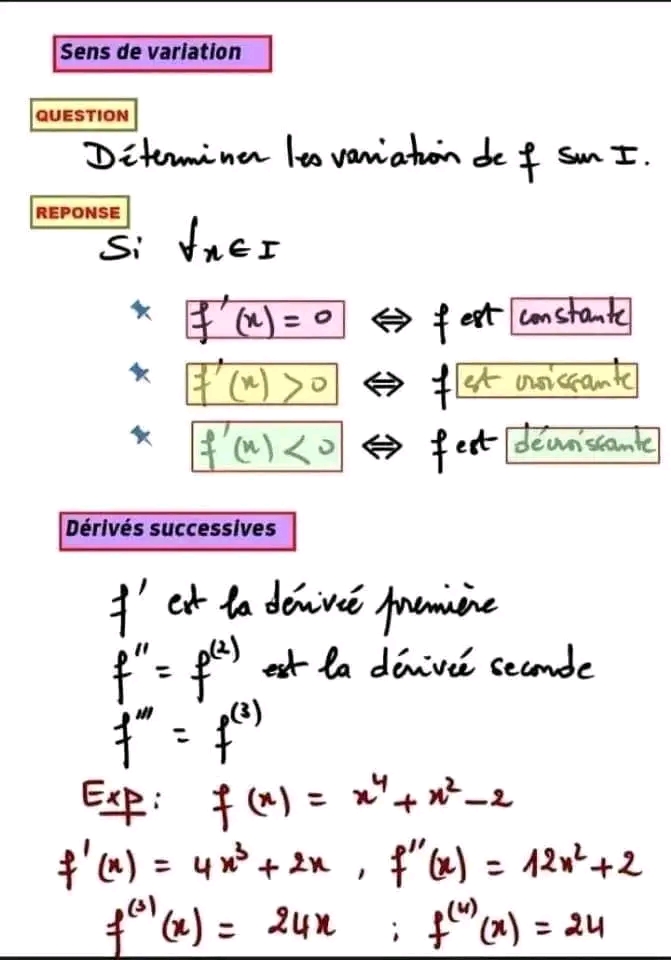 Sens de variation
QUESTION
Déterminer les variation de f sur I.
REPONSE
Si ∀x ∈ I
f'(x) = 0 ⇔ f est constante
f'(x) > 0 ⇔ f est croissante
f'(x) < 0 ⇔ f est décroissante
Dérivés successives
f' est la dérivée première
f'' = f⁽²⁾ est la dérivée seconde
f''' = f⁽³⁾
Exp : f(x) = x⁴ + x² - 2
f'(x) = 4x³ + 2x , f''(x) = 12x² + 2
f⁽³⁾(x) = 24x ; f⁽⁴⁾(x) = 24